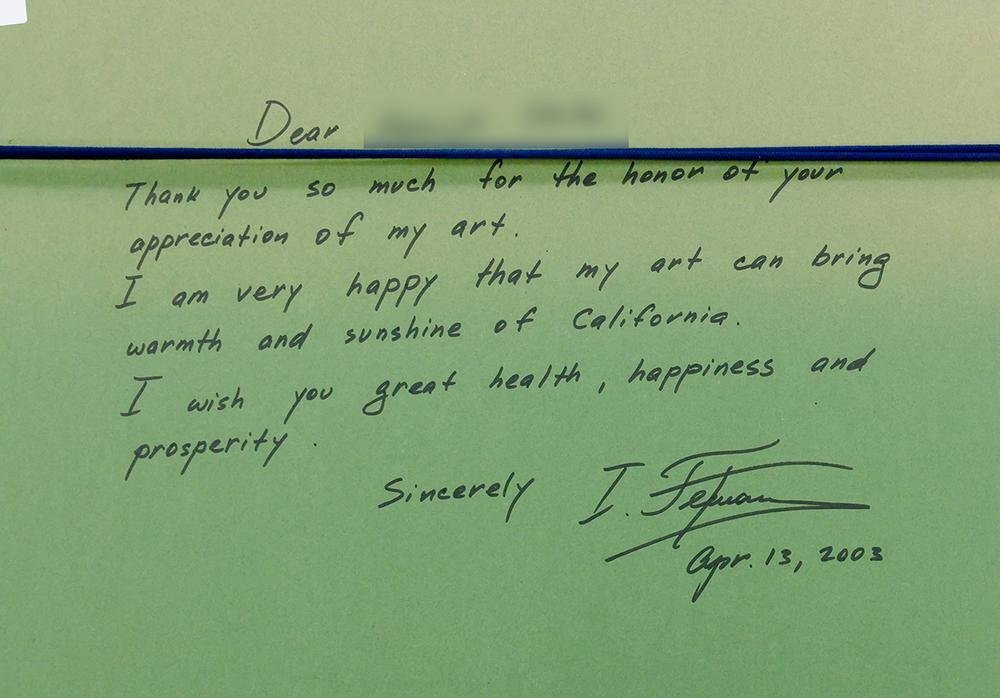 Dear
Thank you so much for the honor of your
appreciation of my art.
I am very happy that my art can bring
warmth and sunshine of California.
I wish you great health, happiness and
prosperity.
Sincerely I.
Apr. 13, 2003